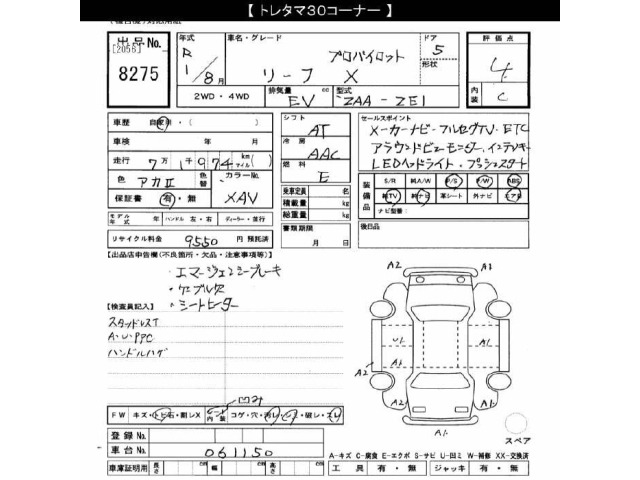 【 トレタマ30コーナー 】
出品No.
[2056]
8275
年式
R1/8月
車名・グレード
プロパイロット
リーフ X
ドア 5
形状
評価点
4
内装 C
2WD・4WD
排気量 EV cc
型式 ZAA-ZE1
車歴 自家用・( )
車検 年 月
走行 7万1千974km(マイル)( )
色 アカII
色替
カラーNo. XAV
保証書 有・無
モデル年式 年
ハンドル 左・右
ディーラー・並行
リサイクル料金 9550円 預託済
シフト AT
冷房 AAC
燃料 E
乗車定員 名
積載量 kg
総重量 kg
書類期限
月 日
セールスポイント
メーカーナビ・フルセグTV・ETC
アラウンドビューモニター・インテリキー
LEDヘッドライト・プッシュスタート
装備品
S/R 純A/W P/S P/W ABS
純TV 純ナビ 革シート 外ナビ エアB
ナビ型番:
後日品
【出品店申告欄(不良箇所・欠品・注意事項等)】
・エマージェンシーブレーキ
・ケーブル欠
・シートヒーター
【検査員記入】
スタッドレスT
A・U・PPC
ハンドルハゲ
A2
A3
U1
A1
A2
A1
A1
A1
A1
スペア
凹み
FW キズ・トビ石・割レX
シート内装
コゲ・穴・汚レ・シミ・破レ・スレ
登録No.
車台No. 061150
A-キズ C-腐食 E-エクボ S-サビ U-凹ミ W-補修 XX-交換済
車庫証明用 長さ cm 幅 cm 高さ cm
工具 有・無 ジャッキ 有・無